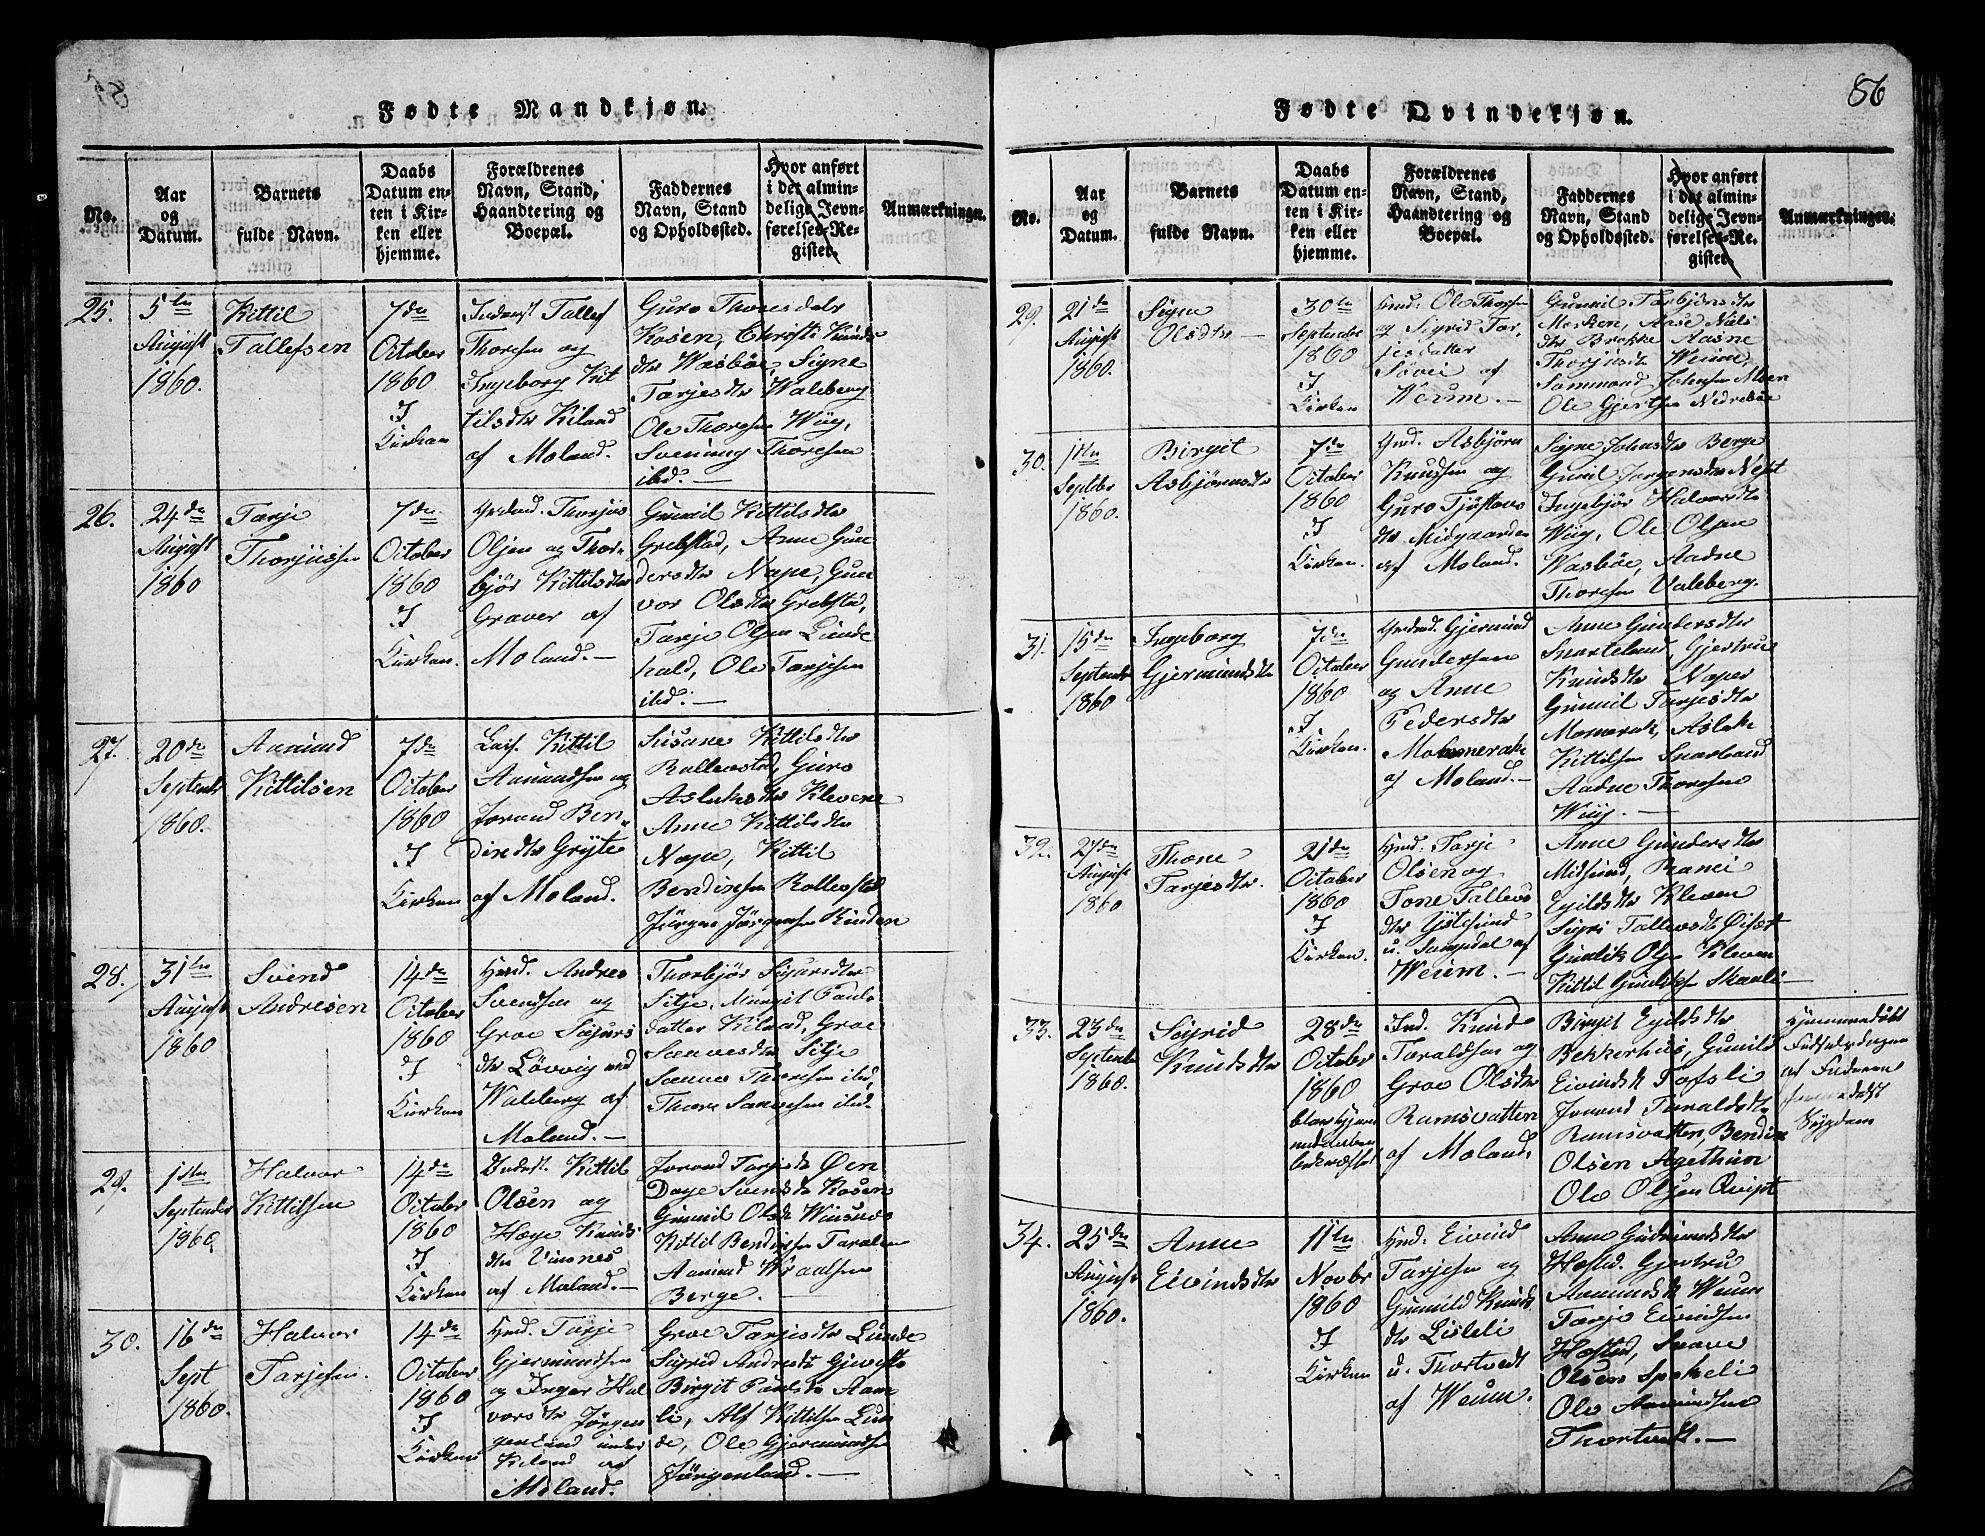 Fødte Mandkjøn.
No.
Aar
og
Datum.
Barnets
fulde Navn.
Daabs
Datum en-
ten i Kir-
ken eller
hjemme.
Forældrenes
Navn, Stand,
Haandtering og
Boepæl.
Faddernes
Navn, Stand
og Opholdssted.
Hvor anført
i det almin-
delige Jevn-
førelses-Re-
gister.
Anmærkninger.
25.
5te
August
1860.
Kittil
Tallefsen
7de
October
1860
I
Kirken
Tallef
Thoresen og
Ingeborg Kit
tilsdtr Kiland
af Moland.
Guro Thoresdatr
Kosen, Christi Knuds
dtr Wasbøe, Signe
Tarjesdtr Waleberg
Ole Thoresen Wiig,
Svenung Thoresen
ibd.
26.
24de
August
1860
Tarje
Thorjussen
7de
October
1860
I
Kirken.
Thorjus
Olsen og Thor-
bjør Kittilsdtr
Graver af
Moland.
Gunnil Kittilsdtr
Grebstad, Anne Gun
dersdtr Nape, Gun
vor Olsdtr Grebstad,
Tarje Olsen Lunde
kald, Ole Tarjesen
ibd.
27.
20de
Septembr
1860.
Aamund
Kittilsen
7de
October
1860
I
Kirken
Kittil
Aamundsen og
Jorand Ben-
dixdtr Gryte
af Moland.
Susane Kittilsdtr
Rollevstad, Guro
Aslaksdtr Klevene
Anne Kittilsdtr
Nape, Kittil
Bendixsen Rollevstad
Jørgen Jørgensen Kinden
28.
31te
August
1860
Svend
Andresen
14de
October
1860
I
Kirken
Hmd. Andres
Svendsen og
Groe Sigurs
dtr Løvvig ved
Waleberg af
Moland.
Thorbjør Sigursdtr
Sitje, Margit Pauls
datter Kiland, Groe
Sanvesdtr Sitje
Sanve Thoresen ibd,
Thore Sanvesen ibd.
29.
1ste
September
1860.
Halvor
Kittilsen
14de
October
1860
I
Kirken
Kittil
Olsen og
Hæge Knuds
dtr Vinsnes
af Moland.
Jorand Tarjesdtr Øen
Daye Svendsdtr Kosen
Gunnil Olsdtr Winsnes
Kittil Bendixsen Taralen
Aamund Wraalsen
Berge.
30.
16de
Sept
1860.
Halvor
Tarjesen.
14de
October
1860
I
Kirken
Hmd. Tarje
Gjermundsen
og Inger Hal
vorsdtr Jørgen
genland under
Kiland af
Moland.
Groe Tarjesdtr Lunde
Sigrid Andresdtr
Birgit Paulsdtr Aam
li, Alf Kittilsen Lun
de, Ole Gjermundsen
Jørgenland.
86
Fødte Qvindekjøn.
No.
Aar
og
Datum.
Barnets
fulde Navn.
Daabs
Datum en-
ten i Kir-
ken eller
hjemme.
Forældrenes
Navn, Stand,
Haandtering og
Boepæl.
Faddernes
Navn, Stand
og Opholdssted.
Hvor anført
i det almin-
delige Jevn-
førelses-Re-
gister.
Anmærkninger.
29.
21de
August
1860.
Signe
Olsdtr
30te
September
1860
I
Kirken
Hmd. Ole Thorsen
og Sigrid Tar-
jesdatter
af
Weum.
Gunnil Torbjønsdtr
Mosken, Aase Nils
dtr Brokke Aasne
Thorjusdtr Weum,
Sammund Johnsen Moen
Ole Gjertsen Nedrebøe
30.
11te
Septber
1860.
Birgit
Asbjørnsdtr
7de
October
1860
I
Kirken.
Asbjørn
Knudsen og
Guro Tjøstovs
dtr Midgaarden
af Moland.
Signe Johnsdtr Berge
Gunil Jørgensdtr
Ingebjør Halvorsdtr
Wiig, Ole Olsen
Wasbøe, Aadne
Thoresen Valeberg.
31.
15de
Septembr
1860
Ingeborg
Gjermundsdtr
7de
October
1860
I
Kirken.
Gjermund
Gundersen
og Anne
Pedersdtr
Momerak
af Moland.
Anne Gundersdtr
Snarteland, Gjertrue
Knudsdtr Naper
Gunnil Tarjesdtr
Momerak, Aslak
Kittilsen Snarland
Aadne Thoresen
Wiig.
32.
27de
August
1860
Thone
Tarjesdtr.
21de
October
1860
I
Kirken.
Hmd. Tarje
Olsen og
Tone Tallevs
dtr
u. af
Weum.
Anne Gundersdtr
Midsund, Ranei
Egildsdtr Kleven
Sigri Tallevsdtr
Gunlik Olsen Kleven
Kittil
33.
23de
Septembr
1860.
Sigrid
Knudsdtr
28de
October
1860
Ind. Knud
Taraldsen og
Groe Olsdtr
Ramsvatten
af Moland.
Birgit Egildsdtr
Bekkerhus, Gunild
Eivindsdtr Tofsli
Jorand Taraldsdtr
Ramsvatten, Bendix
Olsen Agethun
Ole Olsen Qvipt
Hjemmedøbt
af Faderen
34.
25de
August
1860.
Anne
Eivindsdtr
11te
Novbr
1860
I
Kirken
Hmd. Eivind
Tarjesen og
Gunnild Knuds
dtr Lisleli
u. Thortvedt
af Weum.
Anne Gudmundsdtr
Hæstad, Gjertru
Aamundsdtr Weum
Tarje Eivindsen
Hæstad, Snave
Olsen Spokeli
Ole Aamundsen
Thortvedt.